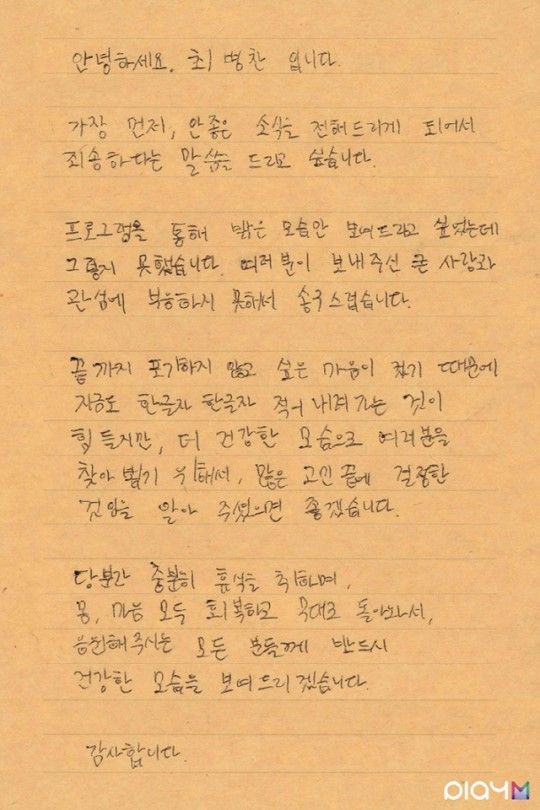 안녕하세요. 최병찬 입니다.
가장 먼저, 안좋은 소식을 전해드리게 되어서
죄송하다는 말씀을 드리고 싶습니다.
프로그램을 통해 밝은 모습만 보여드리고 싶었는데
그렇지 못했습니다. 여러분이 보내주신 큰 사랑과
관심에 부응하지 못해서 송구스럽습니다.
끝까지 포기하지 않고 싶은 마음이 컸기 때문에
지금도 한글자 한글자 적어 내려가는 것이
힘들지만, 더 건강한 모습으로 여러분을
찾아 뵙기 위해서, 많은 고민 끝에 결정한
것임을 알아 주셨으면 좋겠습니다.
당분간 충분히 휴식을 취하며,
몸, 마음 모두 회복하고 무대로 돌아와서,
응원해주시는 모든 분들께 반드시
건강한 모습을 보여드리겠습니다.
감사합니다.
PLAYM